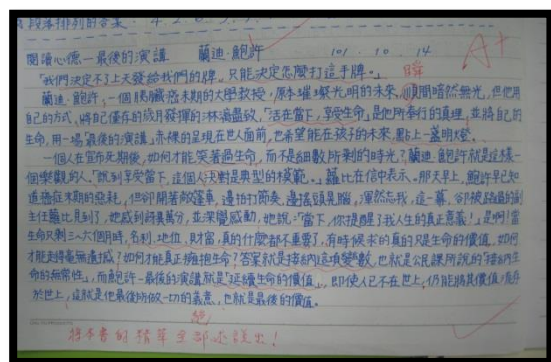 段落排列的答案：4.2.6.3.
閱讀心德—最後的演講 蘭迪·鮑許 101.10.14
A+
「我們決定不了上天發給我們的牌，只能決定怎麼打這手牌。」 瞬
蘭迪·鮑許，一個胰臟癌末期的大學教授，原本璀璨光明的未來，頃間暗然無光，但他用
自己的方式，將自己僅存的歲月發揮的淋漓盡致，「活在當下，享受生命」是他所奉行的真理，在將自己的
生命，用一場「最後的演講」赤裸的呈現在世人面前，也希望能在孩子的未來，點上一盞明燈。
一個人在宣布死期後，如何才能笑著過生命，而不是細數所剩的時光？蘭迪·鮑許就是這樣一
個樂觀的人。「說到享受當下，這個人決對是典型的模範。」蘿比在信中表示。那天早上，鮑許早已知
道癌症末期的惡耗，但卻開著敞篷車，邊拍打節奏、邊搖頭晃腦，渾然忘我，這一幕，卻被路過的副
主任蘿比見到了，她感到詫異萬分，並深受感動，她說：「當下，你提醒了我人生的真正意義！」是啊！當
生命只剩三~六個月時，名利、地位、財富，真的什麼都不重要了，有時候求的真的只是生命的價值，如何
才能走得毫無遺憾？如何才能真正擁抱生命？答案就是接納這項變數，也就是公民課所說的「接納生
命的無常性」，而鮑許—最後的演講就是「延續生命的價值」，即使人已不在世上，仍能將其價值
於世上，這就是他最後所做一切的義意，也就是最後的價值。
將本書的精華全部述說出！